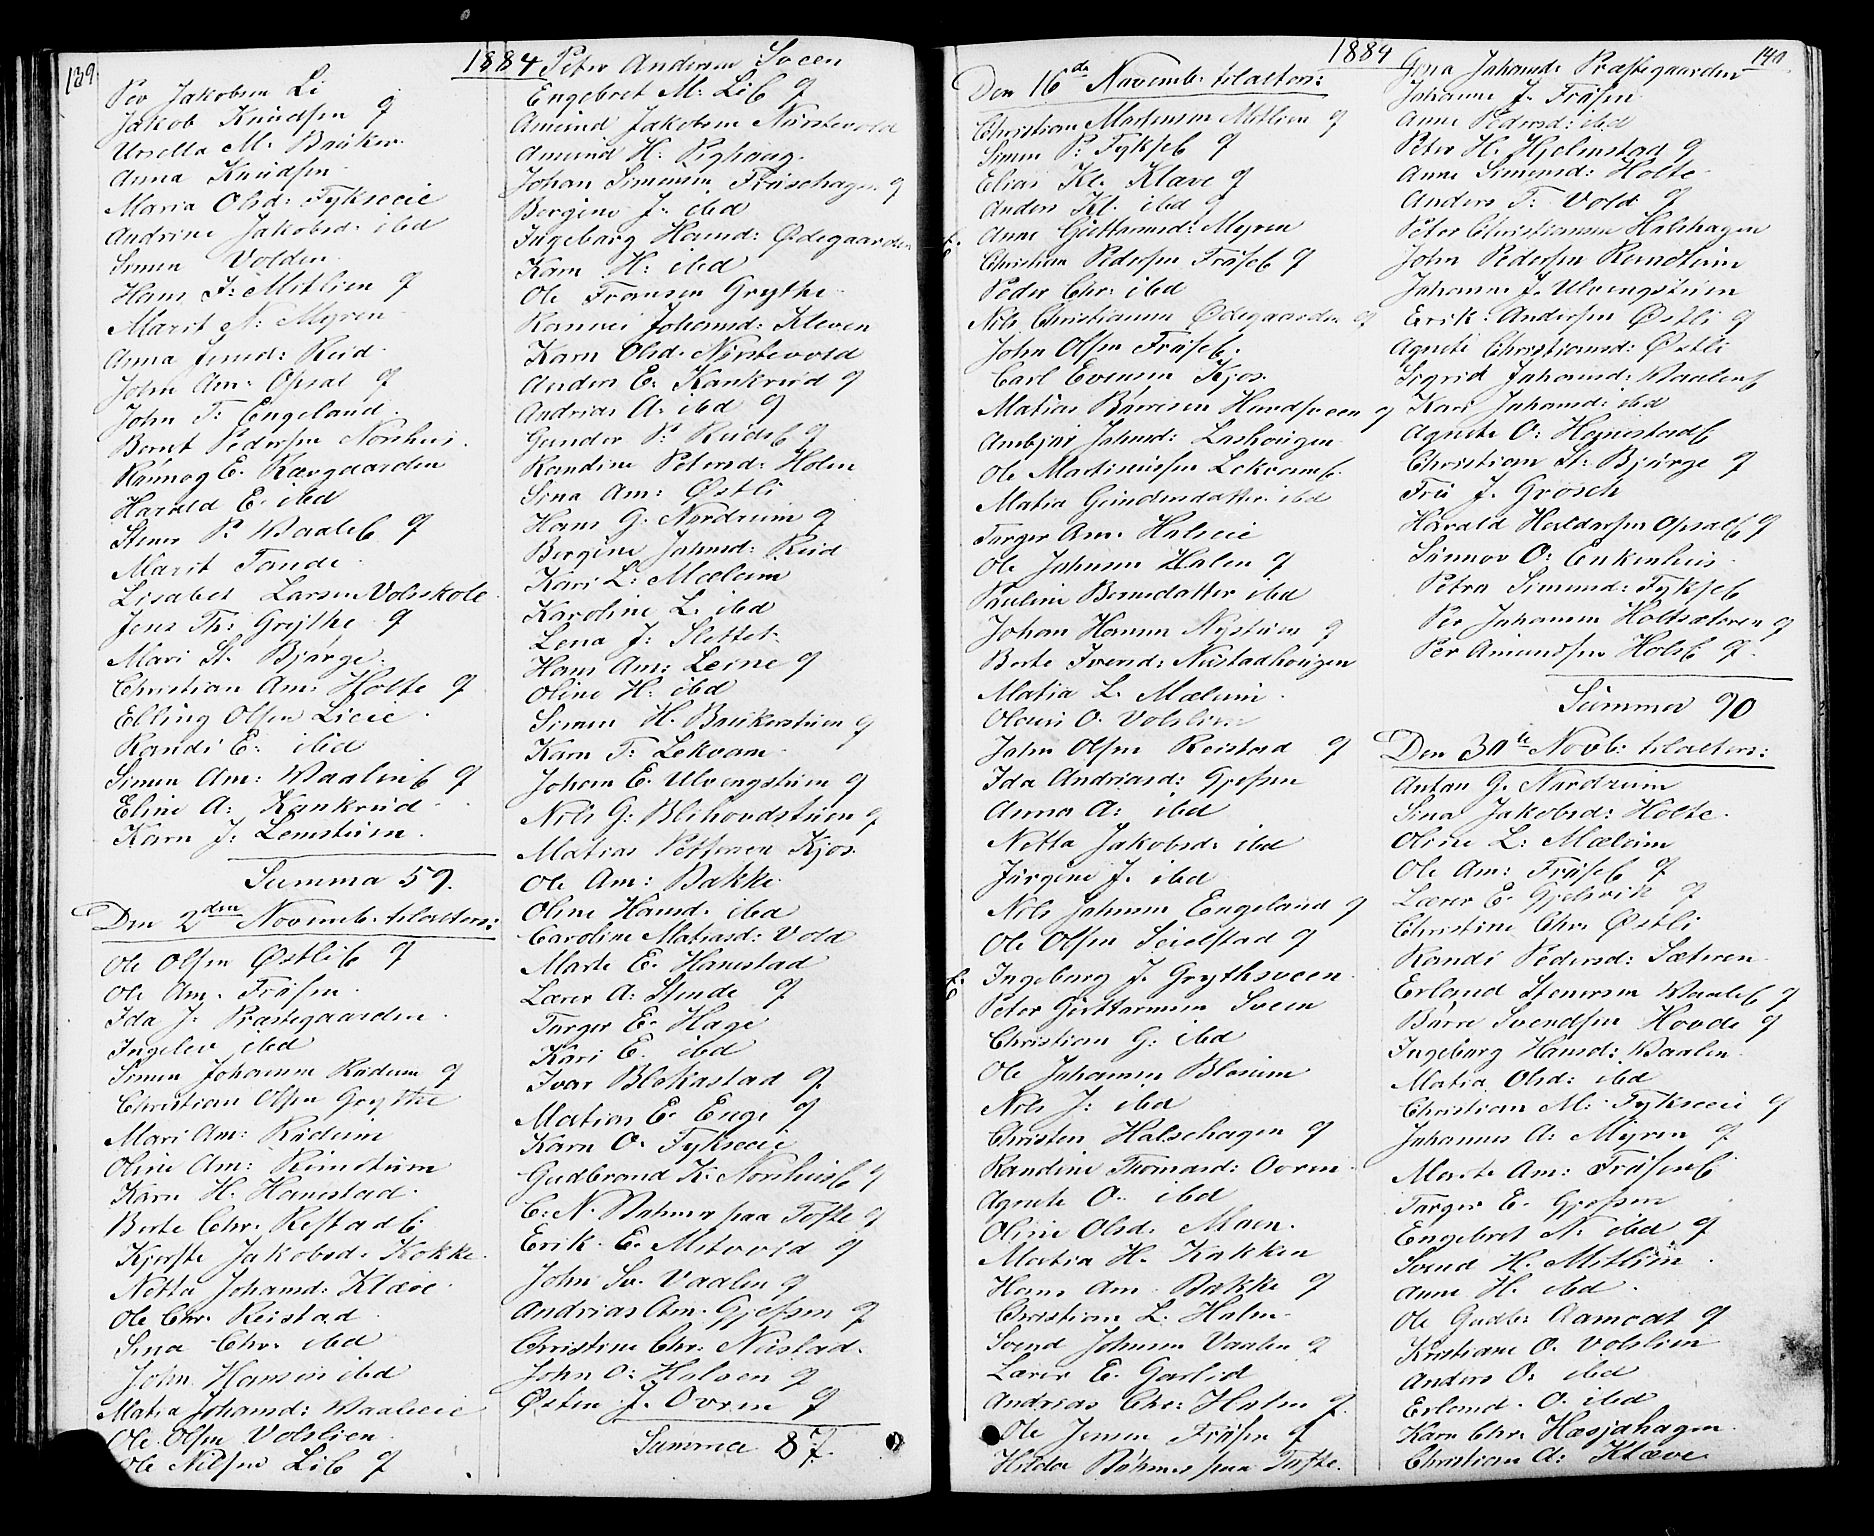 139
1884
Per Jakobsen Li
Jakob Knudsen g
Ursella M. Bruker
Anna Knudsen
Maria Olsd: Fykseeie
Andrine Jakobsd: ibd
Simen Volden
Hans J: Mitlien g
Marit N: Myren
Anna Jensd: Rud
John Am: Opsal g
John T: Engeland
Bernt Pedersen Norshus
Rønnog E. Kavgaarden
Harald E. ibd
Stener P. Waale g
Marit Tande
Lisabet Larsen Volsskole
Jens Th: Grythe g
Mari St. Bjørge
Christian Am: Holte g
Elling Olsen Lieie
Randi E: ibid
Simen Am: Waalin g
Eline A: Kankrud
Karn J: Lenstuen
Summa 59.
Den 2den Novemb. tilalters:
Ole Olsen Østli g
Ole Am. Frøsen
Ida J: Præstegaarden
Ingelev ibd
Simen Johannen Rudum g
Christian Olsen Grythe
Mari Am: Rudum
Oline Am: Rundtum
Karn H. Hanestad
Berte Chr. Restad
Kjerste Jakobsd. Kokke
Netta Johansd: Klæve
Ole Chr. Reistad
Sina Chr. ibd
John Hansen ibd
Matia Johansd: Waaleeie
Ole Olsen Volslien
Ole Nilsen Li g
Peter Andersen Sveen
Engebret M: Li g
Amund Jakobsen Nürstevold
Amund H. Righaug
Johan Simensen Frøisehagen g
Bergine J. ibd
Ingeborg Hansd: Ødegaarden
Karn H: ibd
Ole Fransen Grythe
Rannei Johansd: Kleven
Karn Olsd. Nürstevold
Anders E. Kankrud g
Andrias A. ibd g
Gunder P. Ruds g
Randine Petersd: Holen
Sina Am: Østli
Hans G. Nordrum g
Bergine Johansd: Rud
Kari L: Mælum
Karoline L. ibd
Lena J: Slettet
Hans Am: Leine g
Oline H: ibd
Simen H. Brukerstuen g
Karn T: Lekvam
Johan E. Ulvengstuen g
Nils G: Blihovdstuen g
Matias Pettersen Kjos
Ole Am: Bakke
Oline Hansd. ibd
Caroline Matiasd: Vold
Marte E. Hanestad
Lærer A: Stende g
Torger E. Hage
Kari E. ibd
Ivar Blekastad g
Matias E. Enge g
Karn O. Fykseeie
Gudbrand K. Norshus g
E. N. paa Tofte g
Erik E. Mitvold g
John Sv. Vaalen g
Andrias Am. Gjefsen g
Christine Chr: Nüstad
John O: Holven g
Østen J. Ovren g
Summa 87.
1884
140
Den 16de Novemb. tilalters:
Christian Martinsen Mitlien g
Simen P: Fykse g
Elias Kl. Klæve g
Anders Kl. ibd g
Anne Guttormsd: Myren
Christian Pedersen Frøise g
Peder Chr. ibd
Nils Christiansen Ødegaarden g
John Olsen Frøise
Carl Evensen Kjos
Matias Børresen Hundsveen g
Ambjør Johnsd: Lashougen
Ole Martinusen Lekvam
Matia Gundersdatter ibd
Torger Am. Holseie
Ole Johnsen Holen g
Pauline Berntsdatter ibd
Johan Hansen Nystuen g
Berte Iversd: Nustadhougen
Matia L. Mælum
Olaus O. Volslien
John Olsen Reistad g
Ida Andriasd: Gjefsen
Anna A: ibd
Netta Jakobsd: ibd
Jørgine J. ibd
Nils Johnsen Engeland g
Ole Olsen Seielstad g
Ingeborg J. Grythsveen
Peter Guttormsen Sveen
Christian G: ibd
Ole Johansen Blesum
Nils J: ibd
Christen Halsehagen g
Randine Thomasd: Ovren
Agnete O: ibd
Oline Olsd. Moen
Matia H. Kakken
Hans Am Bakke g
Christian L. Holen
Svend Johnsen Vaalen g
Lærer E. Garlid
Andreas Chr. Holen g
Ole Jensen Frøsen g
Hilda paa Tofte
Gina Johansd: Præstegaarden
Johanne J. Frøisen
Anne Pedersd: ibd
Peter H. Hjelmstad g
Anne Simensd: Holte
Anders T. Vold g
Peter Christiansen Halshagen
John Pedersen Rundtum
Johanne J. Ulvengstuen
Erik Andersen Østli g
Agnete Christiansd: Østli
Sigrid Johansd: Waalen
Kari Johansd: ibd
Agnete O: Hanestad
Christian St: Bjørge g
Fru J. Grosch
Harald Haldorsen Opsal g
Sünnov O: Enkenhus
Petra Simensd: Fykse
Per Johansen Holtsæteren g
Per Amundsen Hols g
Summa 90
Den 30te Novb. tilalters:
Anton G. Nordrum
Sina Jakobsd: Holte
Oline L: Mælum
Ole Am: Frøise g
Lærer E. Gjelsvik g
Christine Chr. Østli
Randi Pedersd: Sæteren
Erland Stenersen Waale g
Børre Svendsen Hovde g
Ingeborg Hansd: Waalen
Matia Olsd: ibd
Christian M: Fykseeie g
Johannes A: Myren g
Marte Am: Frøisen
Torger E. Gjefsen
Engebret N. ibd g
Svend H. Mitlien
Anne H. ibd
Ole Gudb: Aamodt g
Kristiane O. Volslien
Anders O: ibd
Erland O. ibd
Karn Chr. Hæsjahagen
Christian A: Klæve